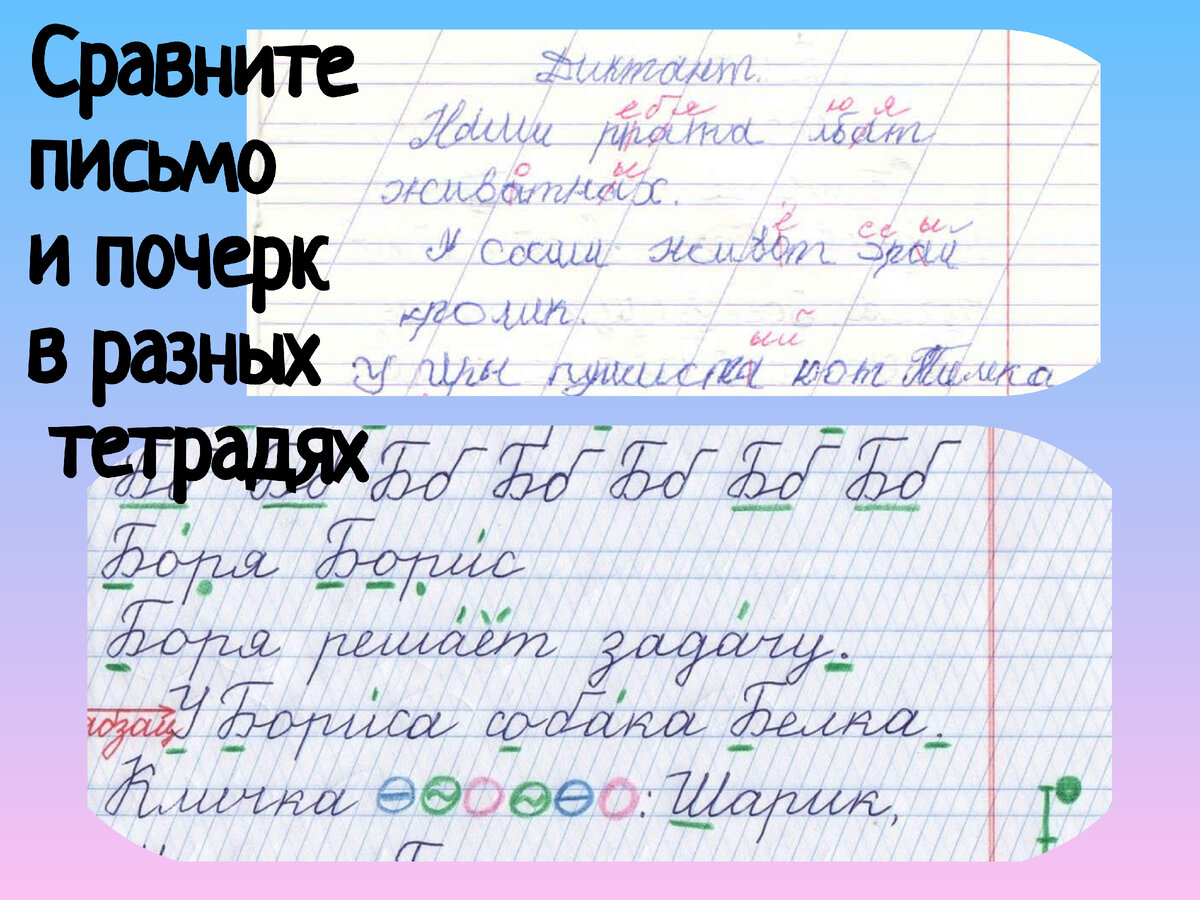 Сравните
письмо
и почерк
в разных
тетрадях
Диктант.
е б я ю я
Наши ррата лбат
о ы
живатнах.
ё се ы
У саши живот эрай
кролик.
ый
У Иры пушиста кот Тимка
Бб Бб Бб Бб Бб Бб Бб
Бо́ря Бори́с
Боря реша́ет зада́чу.
абзац У Бори́са соба́ка Белка.
Кличка : Шарик,